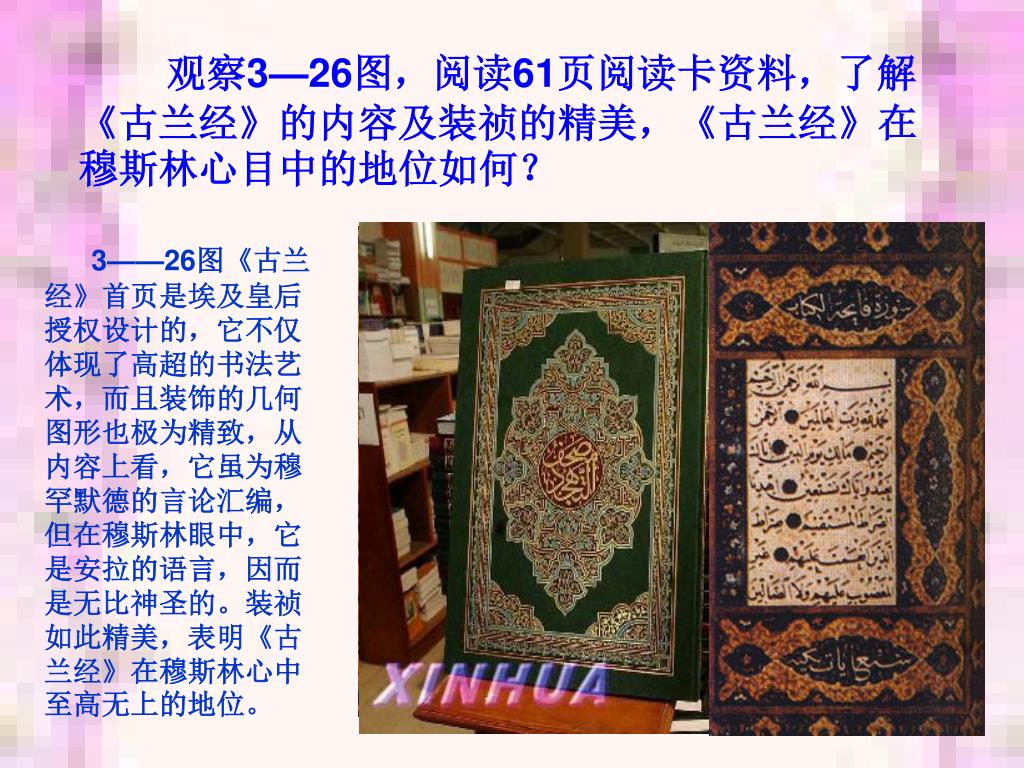 观察3—26图，阅读61页阅读卡资料，了解
《古兰经》的内容及装祯的精美，《古兰经》在
穆斯林心目中的地位如何？
3——26图《古兰
经》首页是埃及皇后
授权设计的，它不仅
体现了高超的书法艺
术，而且装饰的几何
图形也极为精致，从
内容上看，它虽为穆
罕默德的言论汇编，
但在穆斯林眼中，它
是安拉的语言，因而
是无比神圣的。装祯
如此精美，表明《古
兰经》在穆斯林心中
至高无上的地位。
XINHUA
سورة فاتحة الكتاب
بسم الله الرحمن الرحيم